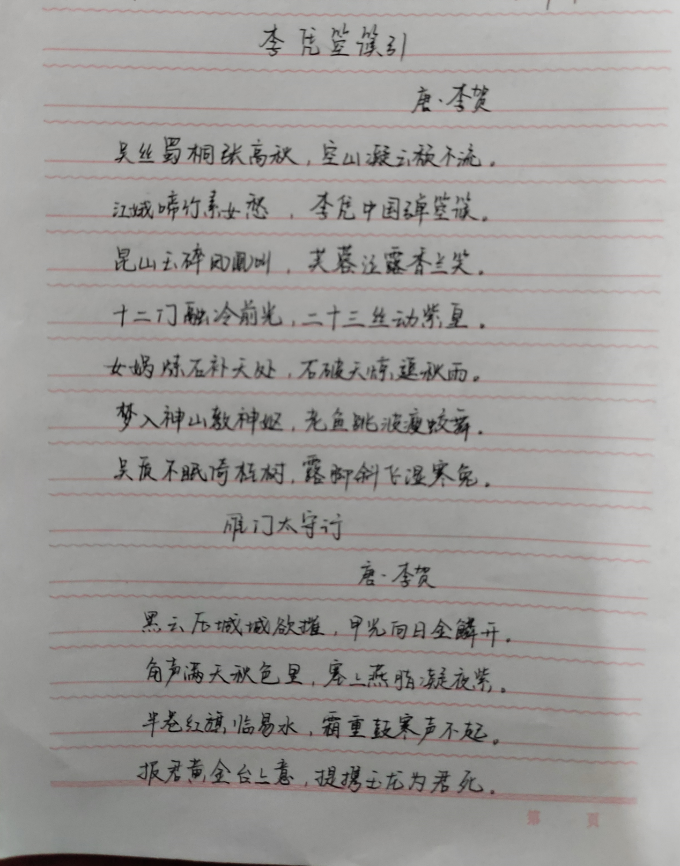 李凭箜篌引
唐·李贺
吴丝蜀桐张高秋，空山凝云颓不流。
江娥啼竹素女愁，李凭中国弹箜篌。
昆山玉碎凤凰叫，芙蓉泣露香兰笑。
十二门融冷前光，二十三丝动紫皇。
女娲炼石补天处，石破天惊逗秋雨。
梦入神山教神妪，老鱼跳波瘦蛟舞。
吴质不眠倚桂树，露脚斜飞湿寒兔。
雁门太守行
唐·李贺
黑云压城城欲摧，甲光向日金鳞开。
角声满天秋色里，塞上燕脂凝夜紫。
半卷红旗临易水，霜重鼓寒声不起。
报君黄金台上意，提携玉龙为君死。
第 頁